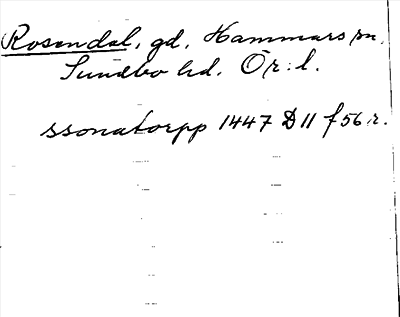 Rosendal, gd, Hammars sn,
Sundbo hd. Ör. l.
ssonatorpp 1447 D 11 f 56 r.